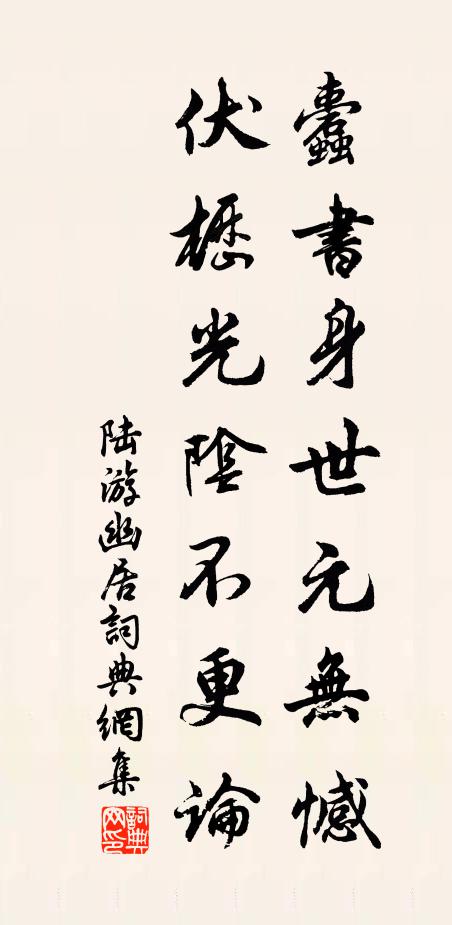 蠹書身世元無憾
伏櫪光陰不更論
陸游幽居詞典網集
詞典
网印